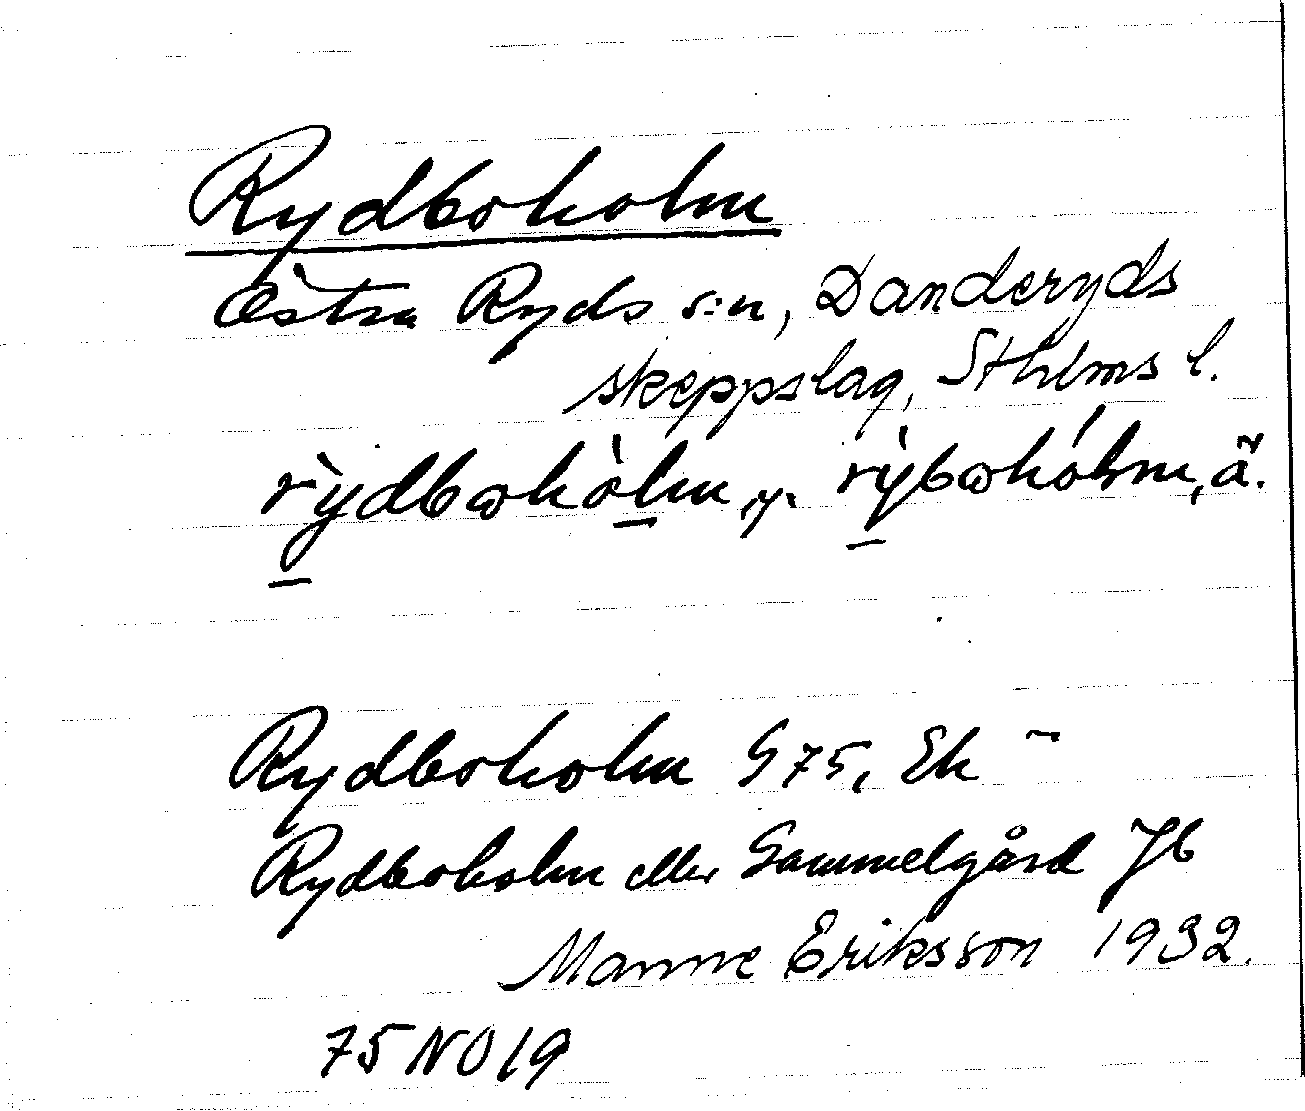 Rydboholm
Östra Ryds s:n, Danderyds
skeppslag, Sthlms l.
rỳdbωhòlm, yr. rỳbωhólm, ä.
Rydboholm G 75, Ek ~
Rydboholm eller Gammelgård Jb
Manne Eriksson 1932.
75 NO 19